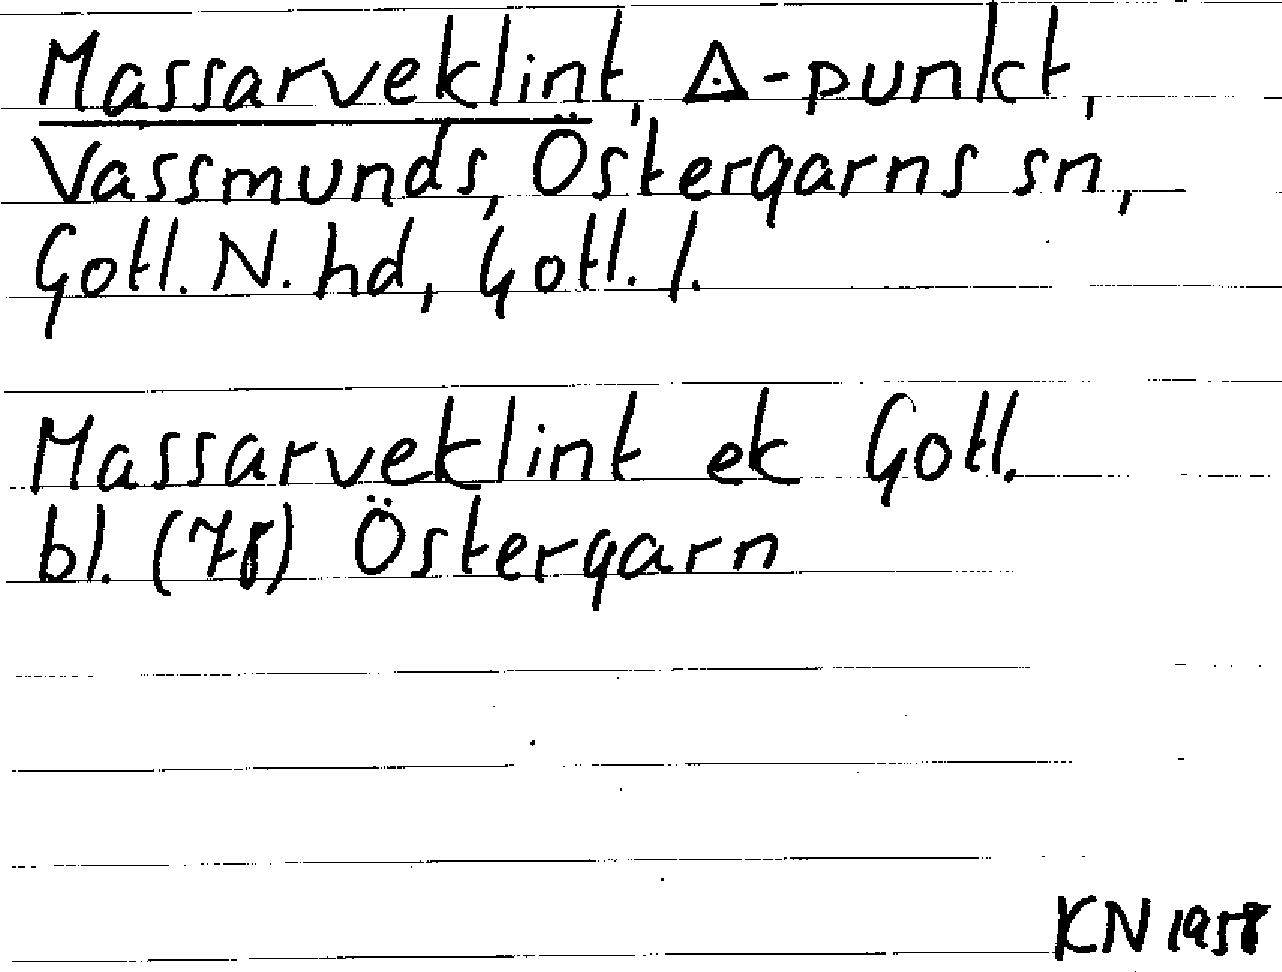 Massarveklint, ◬-punkt,
Vassmunds, Östergarns sn,
Gotl. N. hd, Gotl. l.
Massarveklint ek Gotl.
bl. (78) Östergarn
KN 1958